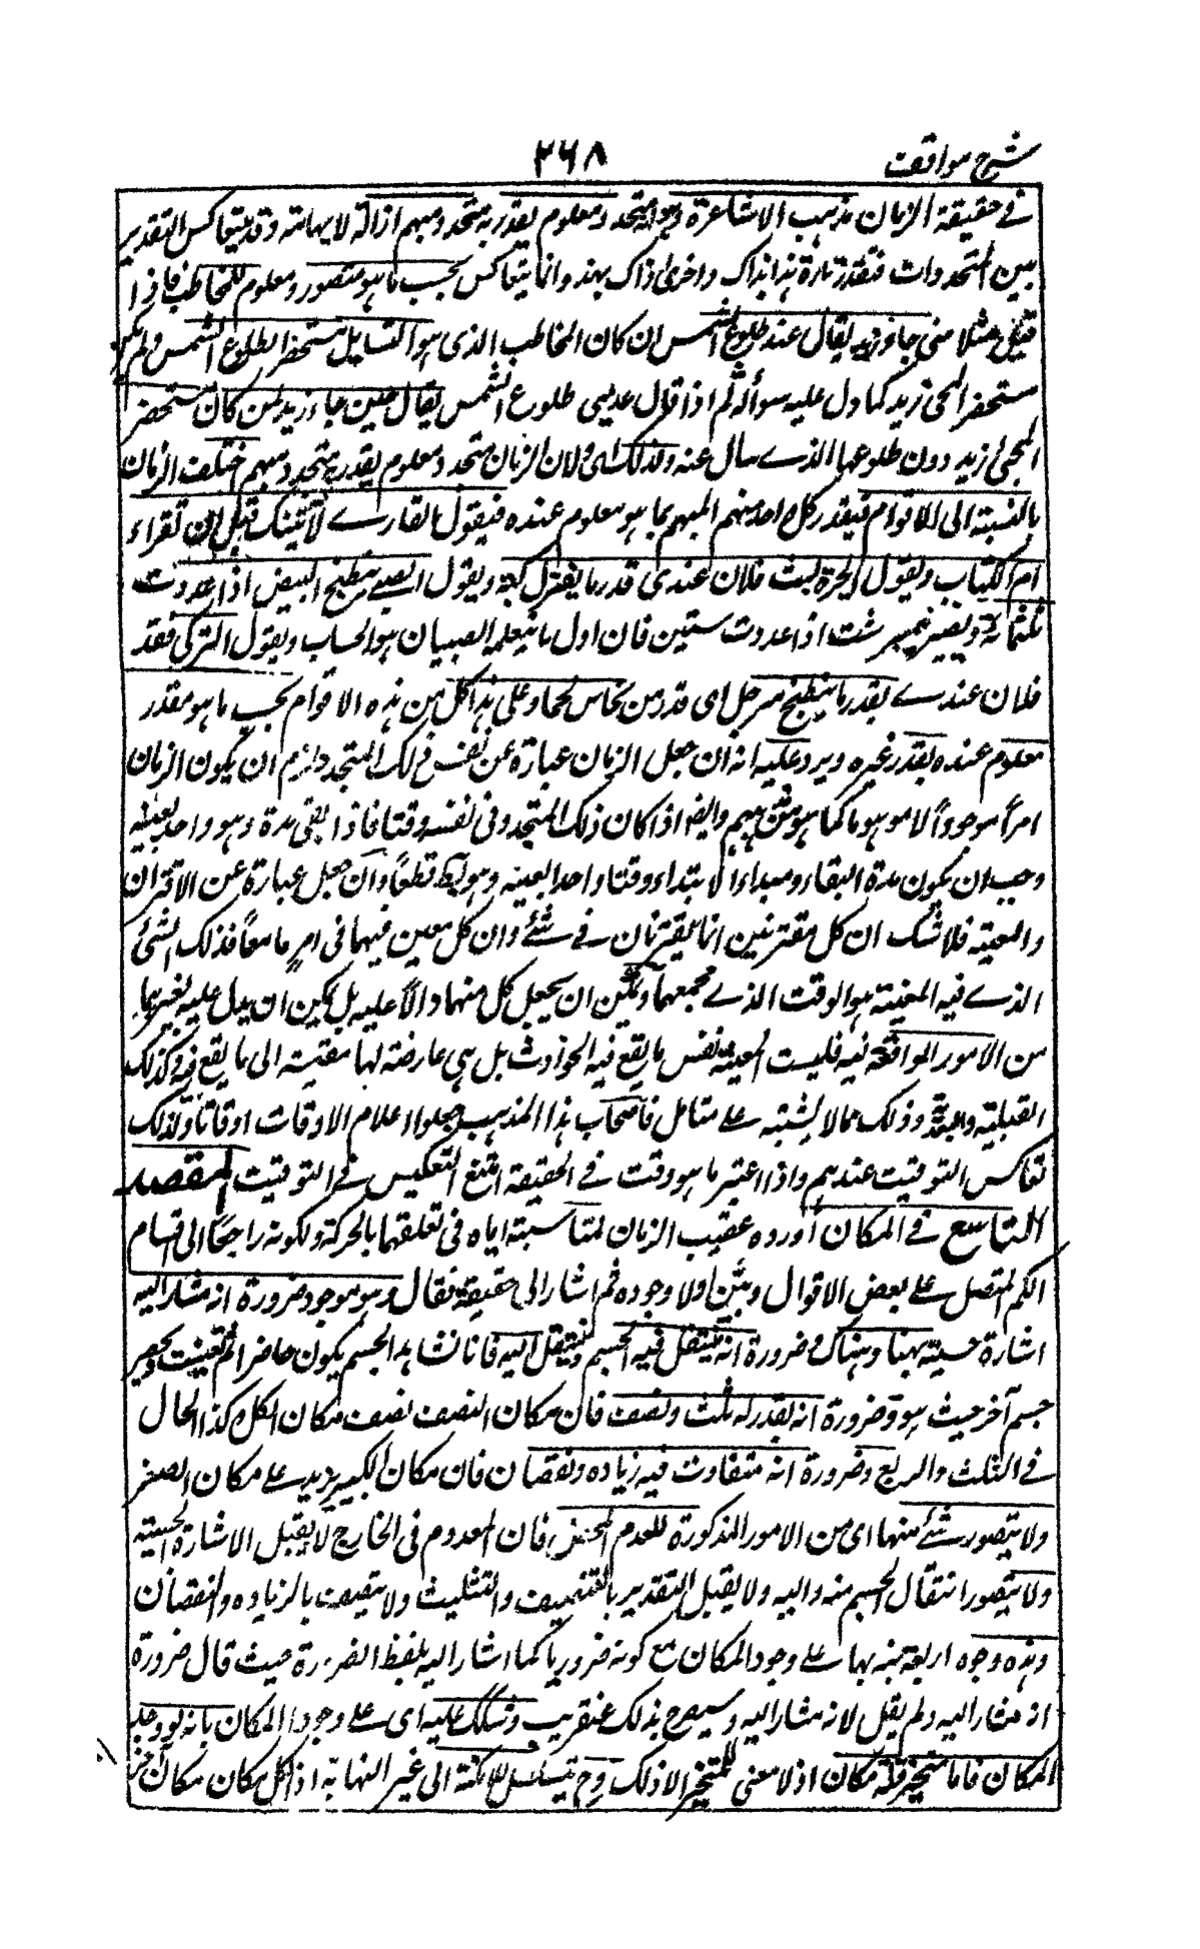 شرح مواقف
٢٦٨
فى حقيقة الزمان مذهب الاشاعرة وهو انه متجدد معلوم يقدر به متجدد مبهم ازالة لابهامه وقد يتعاكس التقدير
بين المتجددات فيقدر تارة هذا بذاك واخرى ذاك بهذا وانما يتعاكس بحسب ما هو متصور ومعلوم للمخاطب فاذا
قيل مثلا متى جاء زيد يقال عند طلوع الشمس ان كان المخاطب الذى هو السايل مستحضرا لطلوع الشمس ولم يكن
مستحضرا لمجئ زيد كما دل عليه سواله ثم اذا قال غيره متى طلوع الشمس يقال حين جاء زيد لمن كان مستحضر
المجئ زيد دون طلوعها الذى سال عنه ولذلك اى ولان الزمان متجدد معلوم يقدر به متجدد مبهم اختلف الزمان
بالنسبة الى الاقوام فيقدر كل واحد منهم المبهم بما هو معلوم عنده فيقول القارى لآتينك قبل ان تقراء
ام الكتاب ويقول المرءة لبث فلان عندى قدر ما يغزل كبة ويقول الصبى ينطبخ البيض اذا عددت
ثلثمائة ويصير نيمبرشت اذا عددت ستين فان اول ما يتعلمه الصبيان هو الحساب ويقول التركى قعد
فلان عندى بقدر ما ينطبخ مرجل اى قدر من نحاس لحما وعلى هذا كل من هذه الاقوام بحسب ما هو مقدر
معلوم عنده يقدر غيره ويرد عليه انه ان جعل الزمان عبارة عن نفس ذلك المتجدد لزم ان يكون الزمان
امرا موجودا لا موهوما كما هو مذهبهم وايضا اذا كان ذلك المتجدد فى نفسه وقتا فاذا بقى مدة وهو واحد بعينه
وجب ان يكون مدة البقاء ومبداء الابتداء وقتا واحدا بعينه وهو بط قطعا وان جعل عبارة عن الاقتران
والمعية فلا شك ان كل مقترنين انما يقترنان فى شئ وان كل معين فهما فى امر ما معا فذلك الشئ
الذى فيه المعية هو الوقت الذى يجمعهما ويمكن ان يجعل كل منهما دالا عليه بل يمكن ان يدل عليه بغيرهما
من الامور الواقعة فيه فليست المعية نفس ما يقع فيه الحوادث بل هى عارضة لها مقيسة الى ما يقع فيه وكذلك
القبلية والبعدية وذلك مما لا يشتبه على متامل فاصحاب هذا المذهب جعلوا اعلام الاوقات اوقاتا ولذلك
تعاكس التوقيت عندهم واذا اعتبر ما هو وقت فى الحقيقة امتنع التعكيس فى التوقيت المقصد
التاسع فى المكان اورده عقيب الزمان لمناسبته اياه فى تعلقهما بالحركة ولكونه راجعا الى اقسام
الكم المتصل على بعض الاقوال وبين اولا وجوده ثم اشار الى حقيقته فقال وهو موجود ضرورة انه مشار اليه
اشارة حسية بهنا وهناك وضرورة انه ينتقل فيه الجسم وينتقل اليه فانا نشاهد الجسم يكون حاضرا ثم يغيب ويحضر
جسم آخر حيث هو وضرورة انه يقدر له ثلث ونصف فان مكان النصف نصف مكان الكل وكذا الحال
فى الثلث والربع وضرورة انه متفاوت فيه زيادة ونقصان فان مكان الكبير يزيد على مكان الصغير
ولا يتصور شئ منها اى من الامور المذكورة للعدم المحض فان المعدوم فى الخارج لا يقبل الاشارة الحسية
ولا يتصور انتقال الجسم منه واليه ولا يقبل التقدير بالتنصيف والتثليث ولا يتصف بالزيادة والنقصان
وهذه وجوه اربعة منبه بها على وجود المكان مع كونه ضروريا كما اشار اليه بلفظ الضرورة حيث قال ضرورة
انه مشار اليه ولم يقل لانه مشار اليه وسيصرح بذلك عنقريب وشكك عليه اى على وجود المكان بانه لو وجد
المكان فاما متحيز فله مكان اذ لا معنى للمتحيز الا ذلك وح يتسلسل الامكنة الى غير النهاية اذ لكل مكان مكان آخر